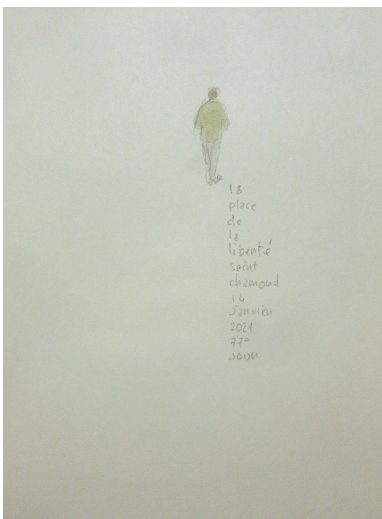 18
place
de
la
liberté
saint
chamond
14
janvier
2021
77e
jour